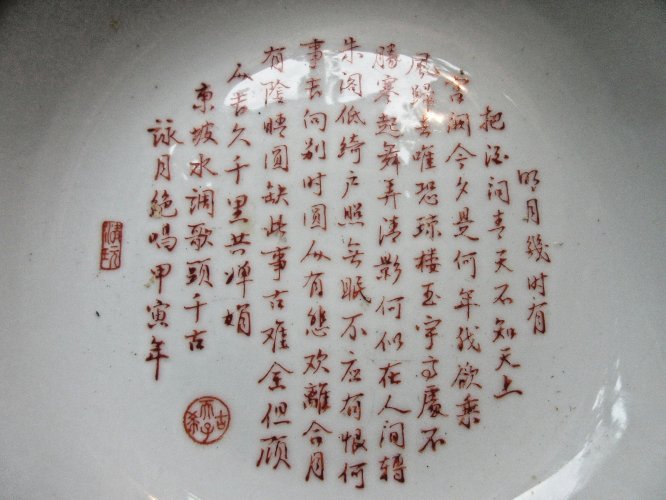 明月幾时有
把酒问青天不知天上
宫阙今夕是何年我欲乘
風歸去唯恐琼楼玉宇高處不
勝寒起舞弄清影何似在人间转
朱阁低绮户照无眠不应有恨何
事长向别时圆人有悲欢離合月
有陰晴圆缺此事古难全但愿
人长久千里共婵娟
東坡水调歌頭千古
詠月絶唱甲寅年
古希天子